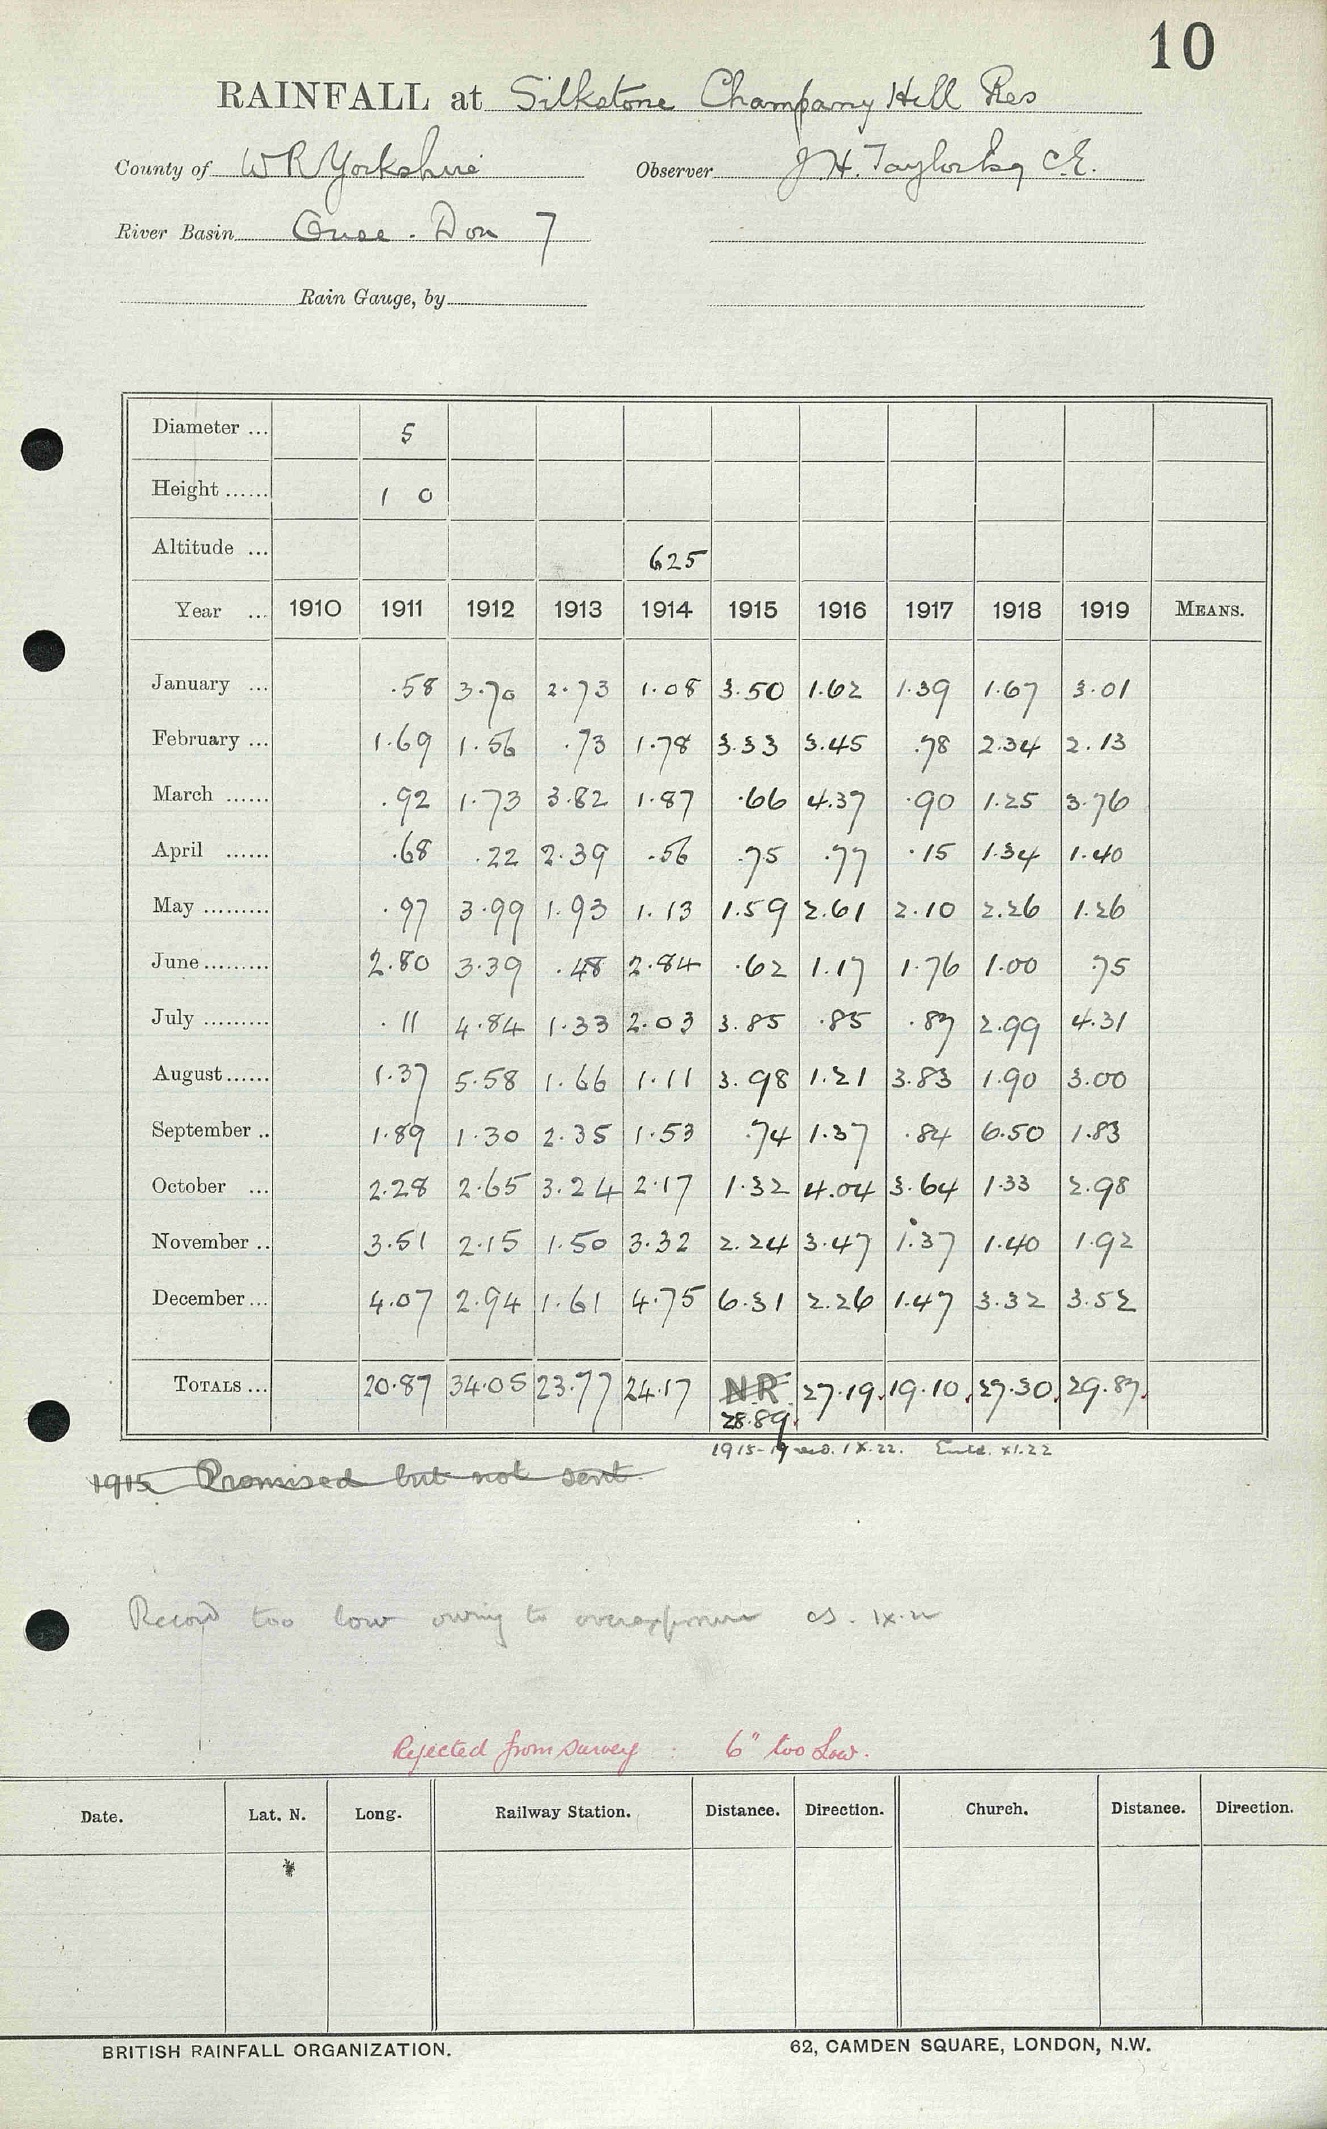 10
RAINFALL at Silkstone Champany Hill Res
County of W R Yorkshire Observer J. H. Taylor Esq C.E.
River Basin Ouse . Don 7
Rain Gauge, by
Diameter ... 5
Height ...... 1 0
Altitude ... 625
Year ... 1910 1911 1912 1913 1914 1915 1916 1917 1918 1919 MEANS.
January ... .58 3.70 2.73 1.08 3.50 1.62 1.39 1.67 3.01
February ... 1.69 1.56 .73 1.78 3.33 3.45 .78 2.34 2.13
March ...... .92 1.73 3.82 1.87 .66 4.37 .90 1.25 3.76
April ...... .68 .22 2.39 .56 .75 .77 .15 1.34 1.40
May ......... .97 3.99 1.93 1.13 1.59 2.61 2.10 2.26 1.26
June ......... 2.80 3.39 .48 2.84 .62 1.17 1.76 1.00 .75
July ......... .11 4.84 1.33 2.03 3.85 .85 .87 2.99 4.31
August ...... 1.37 5.58 1.66 1.11 3.98 1.21 3.83 1.90 3.00
September .. 1.89 1.30 2.35 1.53 .74 1.37 .84 6.50 1.83
October ... 2.28 2.65 3.24 2.17 1.32 4.04 3.64 1.33 2.98
November .. 3.51 2.15 1.50 3.32 2.24 3.47 1.37 1.40 1.92
December ... 4.07 2.94 1.61 4.75 6.31 2.26 1.47 3.32 3.52
TOTALS ... 20.87 34.05 23.77 24.17 NR 27.19. 19.10. 27.30. 29.87.
28.89.
1915-19 recd. IX.22. Entd. XI.22
1915 Promised but not sent
Record too low owing to overexposure IX.22
Rejected from survey : 6" too Low.
Date. Lat. N. Long. Railway Station. Distance. Direction. Church. Distance. Direction.
BRITISH RAINFALL ORGANIZATION. 62, CAMDEN SQUARE, LONDON, N.W.